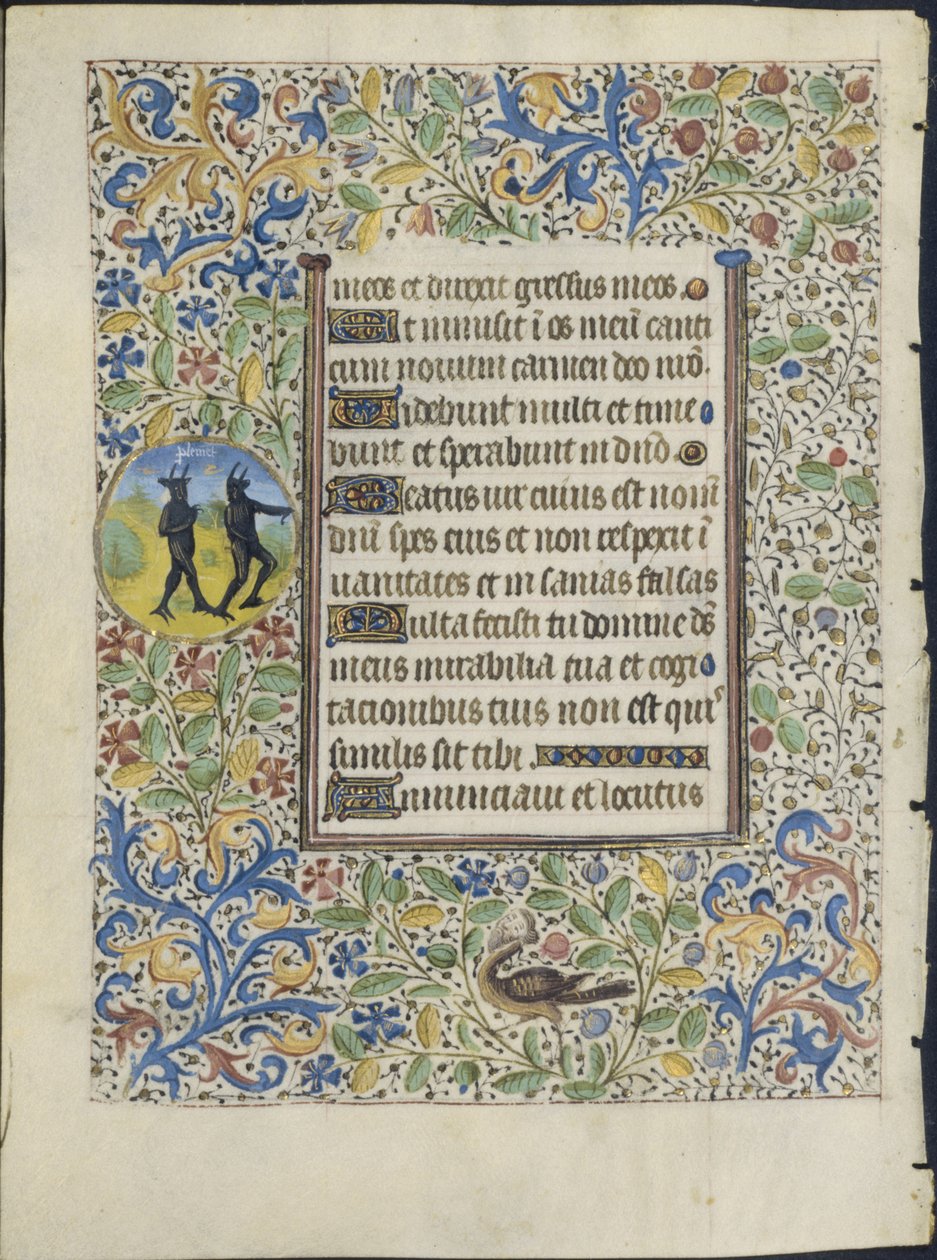 plemet
meos et direxit gressus meos.
Et inmisit ī os meū canti
cum nouum carmen deo nrō.
Uidebunt multi et time
bunt et sperabunt in dnō
Beatus uir cuius est nom̄
dnī spes eius et non respexit ī
uanitates et insanias falsas
Multa fecisti tu domine ds̄
meus mirabilia tua et cogi
tacionibus tuis non est qui
similis sit tibi.
Annunciaui et locutus